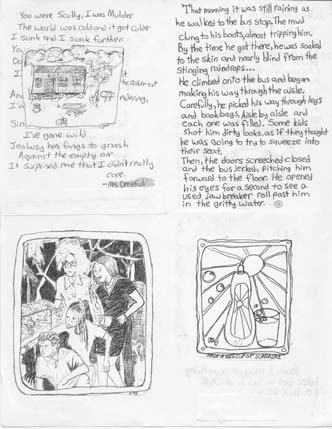 You were Scully, I was Mulder
The world was cold and it got colder
I sank and I sank further
I've gone wild
Jealousy has fangs to gnash
Against the empty air
It surprised me that I didn't really
care.
That morning it was still raining as
he walked to the bus stop. The mud
clung to his boots, almost tripping him.
By the time he got there, he was soaked
to the skin and nearly blind from the
stinging raindrops...
He climbed onto the bus and began
making his way through the aisle.
Carefully, he picked his way through legs
and bookbags. Aisle by aisle and
each one was filled. Some kids
shot him dirty looks, as if they thought
he was going to try to squeeze into
their seat.
Then, the doors screeched closed
and the bus jerked, pitching him
forward to the floor. He opened
his eyes for a second to see a
used jawbreaker roll past him
in the gritty water.